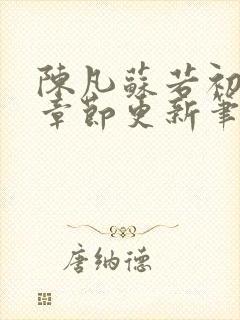 陳凡蘇若初
章節更新筆
唐納德